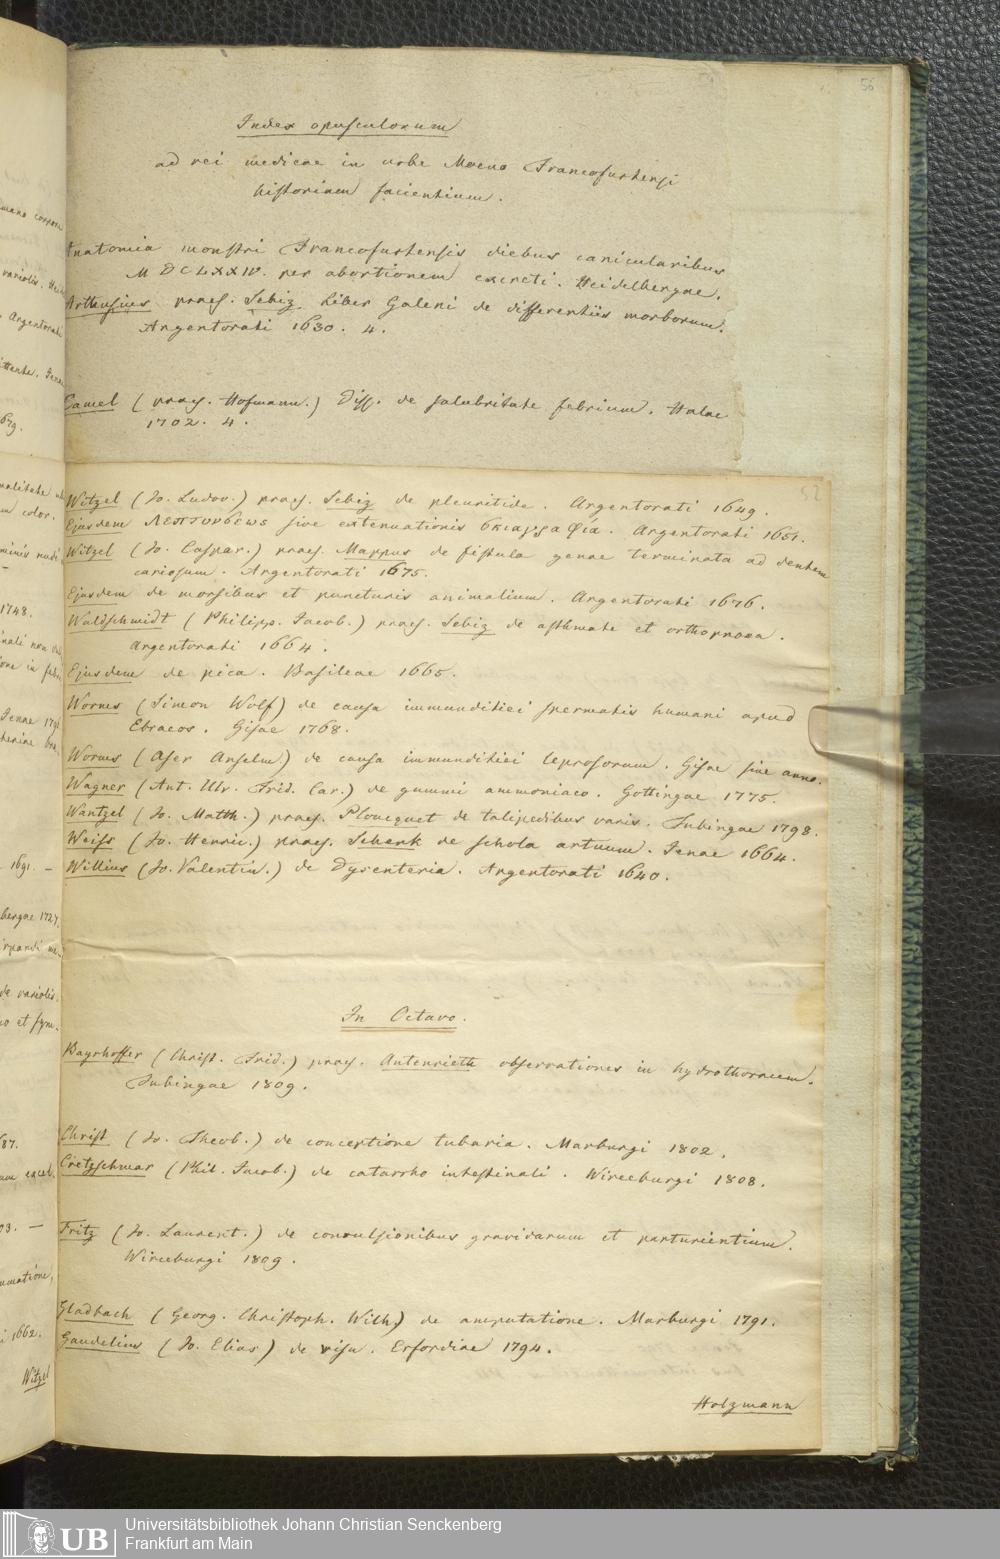 56
Index opusculorum
ad rei medicae in urbe Moeno Francofurtensi
historiam facientium.
Anatomia monstri Francofurtensis diebus canicularibus
MDCLXXIV. per abortionem excreti. Heidelbergae.
Arthusius praes. Sebiz Liber Galeni de differentiis morborum.
Argentorati 1630. 4.
Camel (praes. Hofmann.) Diss. de salubritate febrium. Halae
1702. 4.
52
Witzel (Jo. Ludov.) praes. Sebiz de pleuritide. Argentorati 1649.
Ejusdem sive extenuationis σκιαγραφία. Argentorati 1651.
Witzel (Jo. Caspar.) praes. Mappus de fistula genae terminata ad dentem
cariosum. Argentorati 1675.
Ejusdem de morsibus et puncturis animalium. Argentorati 1676.
Waldschmidt (Philipp. Jacob.) praes. Sebiz de asthmate et orthopnoea.
Argentorati 1664.
Ejusdem de pica. Basileae 1665.
Worms (Simon Wolf) de causa immunditiei spermatis humani apud
Ebraeos. Gisae 1768.
Worms (Aser Anselm) de causa immunditiei leprosorum. Gisae sine anno.
Wagner (Ant. Ulr. Frid. Car.) de gummi ammoniaco. Gottingae 1775.
Wantzel (Jo. Matth.) praes. Ploucquet de talipedibus varis. Tubingae 1798.
Weiss (Jo. Henric.) praes. Schenk de schola artuum. Jenae 1664.
Willius (Jo. Valentin.) de Dysenteria. Argentorati 1640.
In Octavo.
Bayrhoffer (Christ. Frid.) praes. Autenrieth observationes in hydrothoracem.
Tubingae 1809.
Christ (Jo. Theob.) de conceptione tubaria. Marburgi 1802.
Cretzschmar (Phil. Jacob.) de catarrho intestinali. Wirceburgi 1808.
Fritz (Jo. Laurent.) de convulsionibus gravidarum et parturientium.
Wirceburgi 1809.
Gladbach (Georg. Christoph. Wilh.) de amputatione. Marburgi 1791.
Gaudelius (Jo. Elias) de visu. Erfordiae 1794.
Holzmann
Witzel
UB
Universitätsbibliothek Johann Christian Senckenberg
Frankfurt am Main